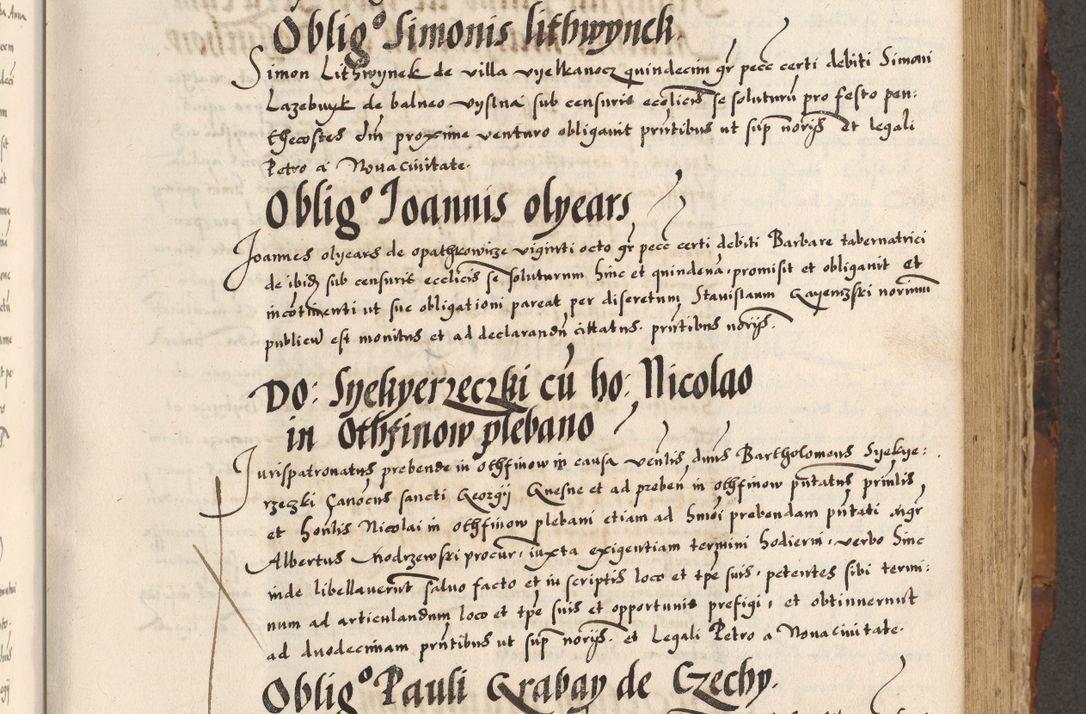 Oblig⁰ Simonis lithwynek.
Simon Lithwynek de villa vyelkanocz quindecim gr pecc certi debiti Simoni
Lazebnyk de balneo vystna sub censuris ecclicis se soluturu pro festo pen:
thecostes din proxime venturo obligauit pntibus ut sup norijs et legali
Petro a Nouaciuitate.
Oblig⁰ Joannis olyears
Joannes olyears de opathkowize viginti octo gr pecc certi debiti Barbare tabernatrici
de ibid sub censuris ecclicis se soluturum hinc et quindena, promisit et obligauit et
incotinenti ut sue obligationi pareat per discretum Stanislaum Gayenczki norium
publicu est monitus et ad declarandu cittatus. pntibus norijs.
Do: Syekyerzeczki cu ho: Nicolao
in Othfinow plebano
Jurispatronatus prebende in othfinow in causa ventlis, dnus Bartholomeus Syekye:
rzeczki Canocus sancti Georgij Gnesne et ad preben in othfinow pntatus princlis
et honlis Nicolai in othfinow plebani etiam ad hmoi prebendam pntati mgr
Albertus Modrzewski procur, iuxta exigentiam termini hodierni, verbo hinc
inde libellauerut saluo facto et in scriptis loco et tpe suis, petentes sibi termi:
num ad articulandum loco et tpe suis et opportunis prefigi, et obtinuerunt
ad duodecimam pntibus ut sup norijs. et Legali Petro a Nouaciuitate.
Oblig⁰ Pauli Grabay de Czechy.